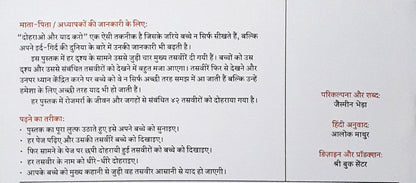 माता-पिता / अध्यापकों की जानकारी के लिए:
"दोहराओ और याद करो" एक ऐसी तकनीक है जिसके जरिये बच्चे न सिर्फ सीखते हैं, बल्कि
अपने इर्द-गिर्द की दुनिया के बारे में उनकी जानकारी भी बढ़ती है।
इस पुस्तक में हर दृश्य के सामने उससे जुड़ी चार मुख्य तस्वीरें दी गयी हैं। बच्चों को उस
दृश्य और उससे संबंधित तस्वीरों को देखने में बहुत मजा आएगा। तस्वीरें फिर से देखने और
उनपर ध्यान केंद्रित करने पर बच्चे को वे न सिर्फ अच्छी तरह समझ में आ जाती हैं बल्कि उन्हें
हमेशा के लिए अच्छी तरह याद भी हो जाती हैं।
हर पुस्तक में रोजमर्रा के जीवन और जगहों से संबंधित ४२ तस्वीरों को दोहराया गया है।
पढ़ने का तरीका:
• पुस्तक का पूरा लुत्फ उठाते हुए इसे अपने बच्चे को सुनाइए।
• हर पेज पढ़िए और उसकी तस्वीरें बच्चे को दिखाइए।
• फिर सामने के पेज पर छपी दोहरायी हुई तस्वीरों को बच्चे को दिखाइए।
• हर तस्वीर के नाम को धीरे-धीरे दोहराइए।
• आपके बच्चे को मुख्य कहानी से जुड़ी वह तस्वीर आसानी से याद हो जाएगी।
परिकल्पना और शब्द:
जैस्मीन भेड़ा
हिंदी अनुवाद:
आलोक माथुर
डिज़ाइन और प्रॉडक्शन:
श्री बुक सेंटर